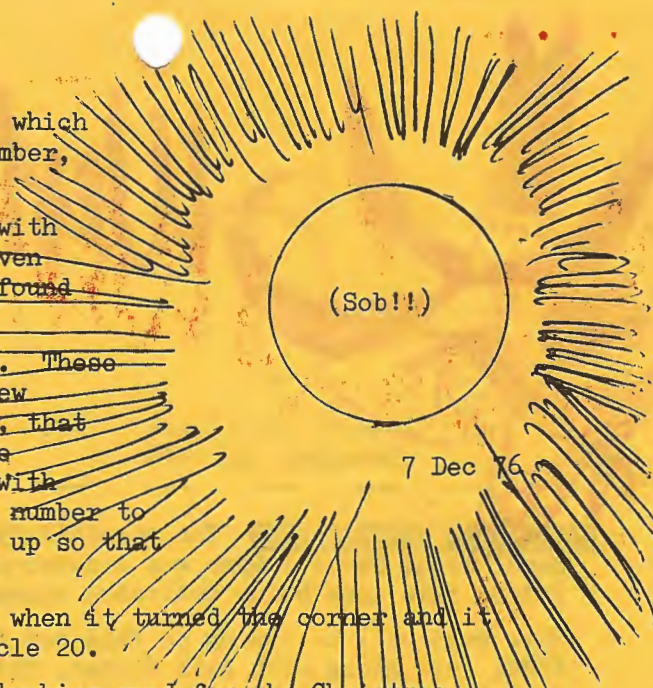 which
mber,
with
ven
found
(Sob!!)
. These
ew
, that
e
7 Dec 76
With
number to
up so that
when it turned the corner and it
cle 20.